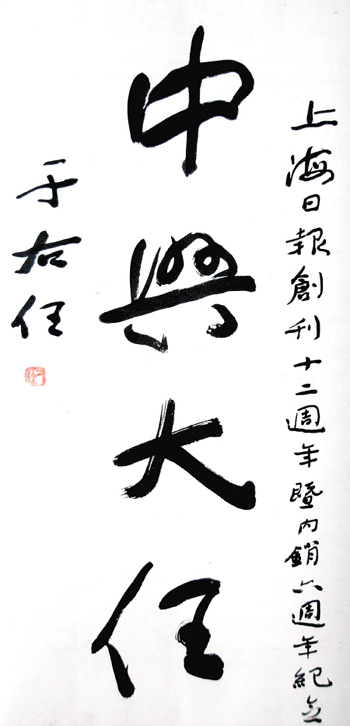 上海日報創刊十二週年暨內銷六週年紀念
中興大任
于右任